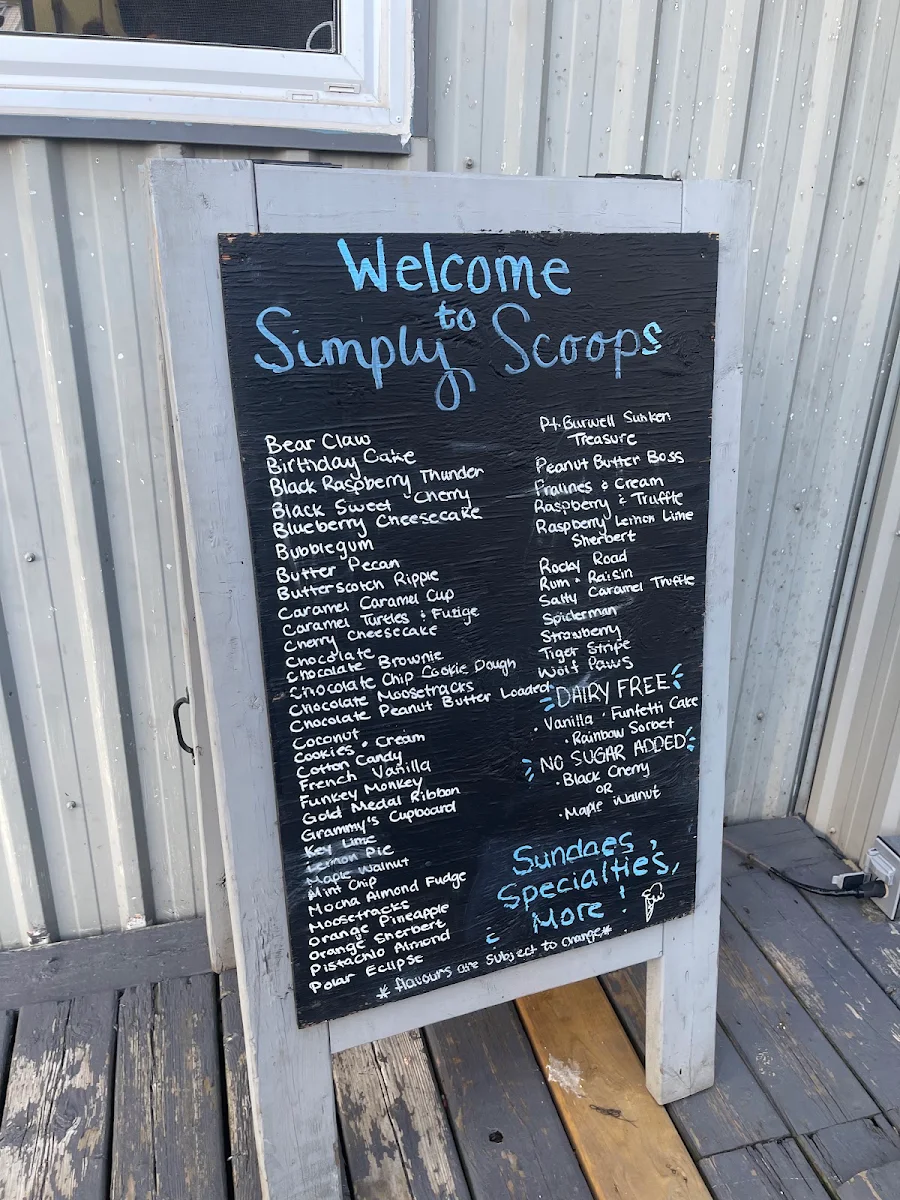 Welcome
to
Simply Scoops
Bear Claw
Birthday Cake
Black Raspberry Thunder
Black Sweet Cherry
Blueberry Cheesecake
Bubblegum
Butter Pecan
Butterscotch Ripple
Caramel Caramel Cup
Caramel Turtles & Fudge
Cherry Cheesecake
Chocolate
Chocolate Brownie
Chocolate Chip Cookie Dough
Chocolate Moosetracks
Chocolate Peanut Butter Loaded
Coconut
Cookies & Cream
Cotton Candy
French Vanilla
Funkey Monkey
Gold Medal Ribbon
Grammy's Cupboard
Key Lime
Lemon Pie
Maple Walnut
Mint Chip
Mocha Almond Fudge
Moosetracks
Orange Pineapple
Orange Sherbert
Pistachio Almond
Polar Eclipse
Pt. Burwell Sunken
Treasure
Peanut Butter Boss
Pralines & Cream
Raspberry & Truffle
Raspberry Lemon Lime
Sherbert
Rocky Road
Rum & Raisin
Salty Caramel Truffle
Spiderman
Strawberry
Tiger Stripe
Wolf Paws
DAIRY FREE
· Vanilla · Funfetti Cake
· Rainbow Sorbet
NO SUGAR ADDED
· Black Cherry
OR
· Maple Walnut
Sundaes,
Specialties,
& More!
* flavours are subject to change *